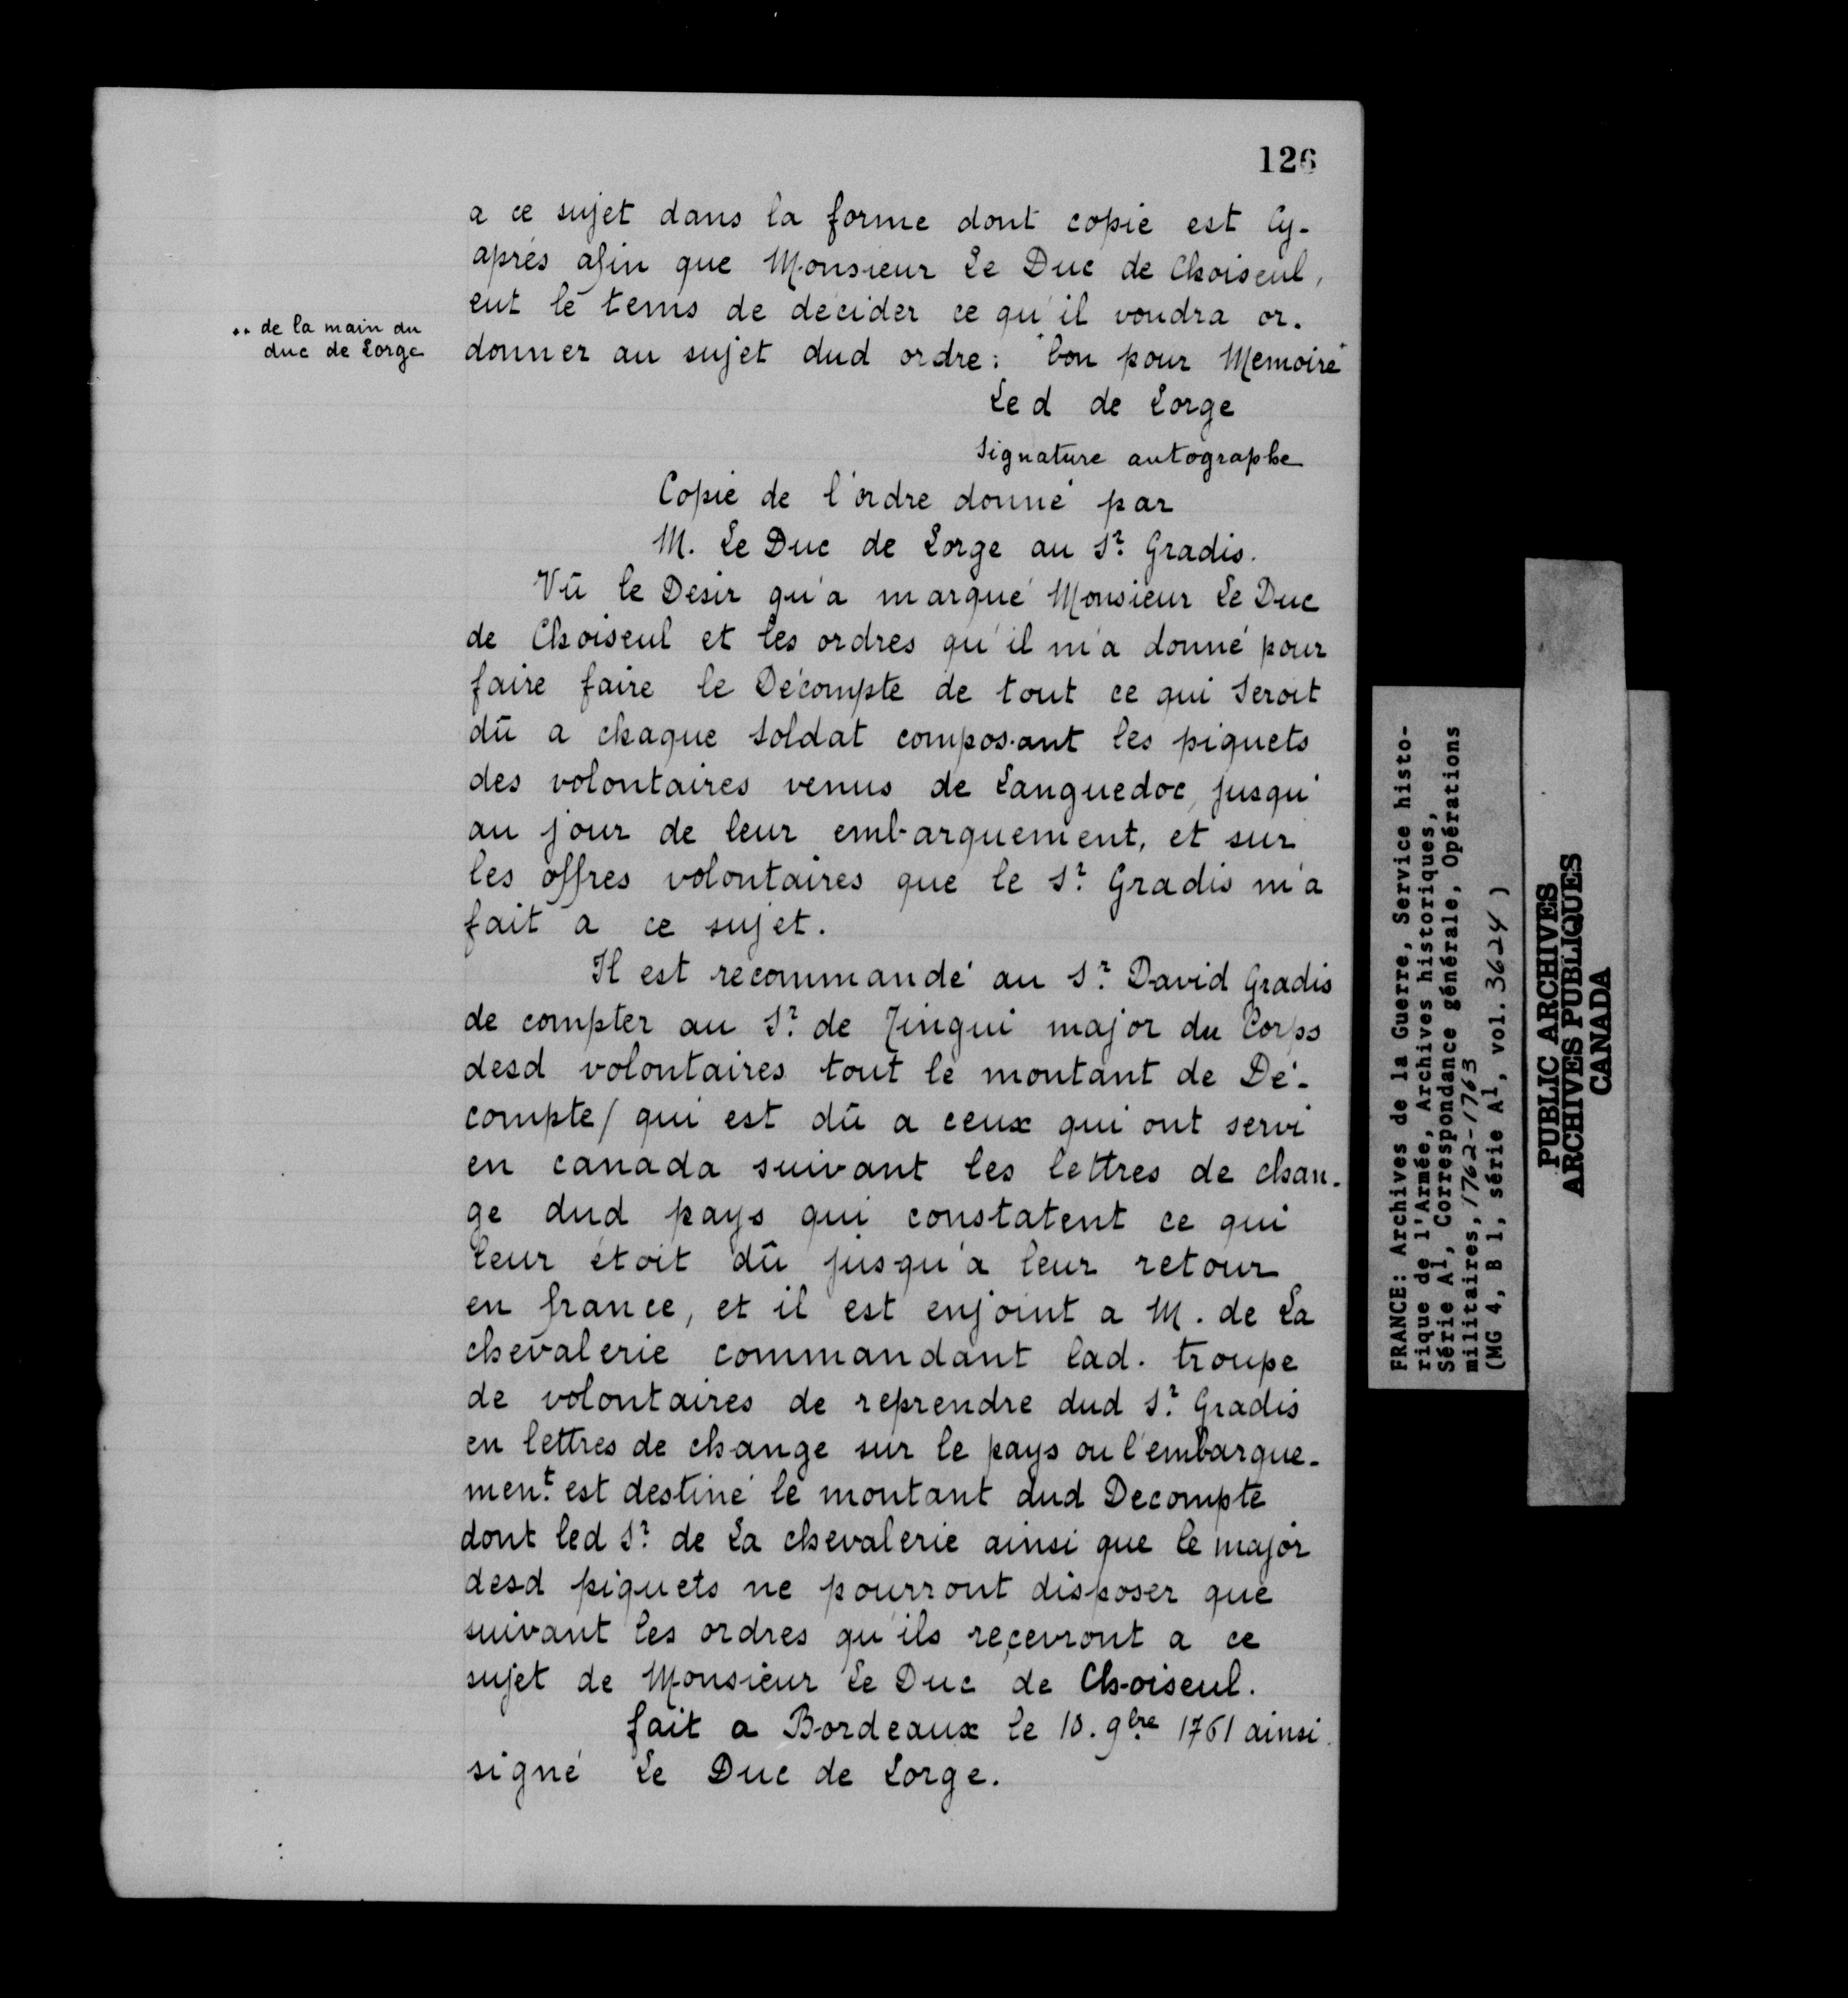 126
a ce sujet dans la forme dont copie est Cy-
après afin que Monsieur Le Duc de Choiseul,
eut le tems de decider ce qu'il voudra or-
.. de la main du
duc de Lorge
donner au sujet dud ordre: "bon pour Memoire"
Le d de Lorge
Signature autographe
Copie de l'ordre donné par
M. Le Duc de Lorge au Sr. Gradis.
Vû le Desir qu'a marqué Monsieur Le Duc
de Choiseul et les ordres qu'il m'a donné pour
faire faire le Décompte de tout ce qui Seroit
dû a chaque Soldat composant les piquets
des volontaires venus de Languedoc, jusqu'
au jour de leur embarquement, et sur
les offres volontaires que le Sr. Gradis m'a
fait a ce sujet.
Il est recommandé au Sr. David Gradis
de compter au Sr. de major du Corps
desd volontaires tout le montant de Dé-
compte/ qui est dû a ceux qui ont servi
en canada suivant les lettres de chan-
ge dud pays qui constatent ce qui
leur étoit dû jusqu'a leur retour
en france, et il est enjoint a M. de La
chevalerie commandant lad. troupe
de volontaires de reprendre dud Sr. Gradis
en lettres de change sur le pays ou l'embarque-
ment. est destiné le montant dud Decompte
dont led Sr. de La chevalerie ainsi que le major
desd piquets ne pourront disposer que
suivant les ordres qu'ils reçevront a ce
sujet de Monsieur Le Duc de Choiseul.
fait a Bordeaux le 10. 9bre 1761 ainsi
signé Le Duc de Lorge.
FRANCE: Archives de la Guerre, Service histo-
rique de l'Armée, Archives historiques,
Série A1, Correspondance générale, Opérations
militaires, 1762-1763
(MG 4, B 1, série A1, vol. 3624)
PUBLIC ARCHIVES
ARCHIVES PUBLIQUES
CANADA